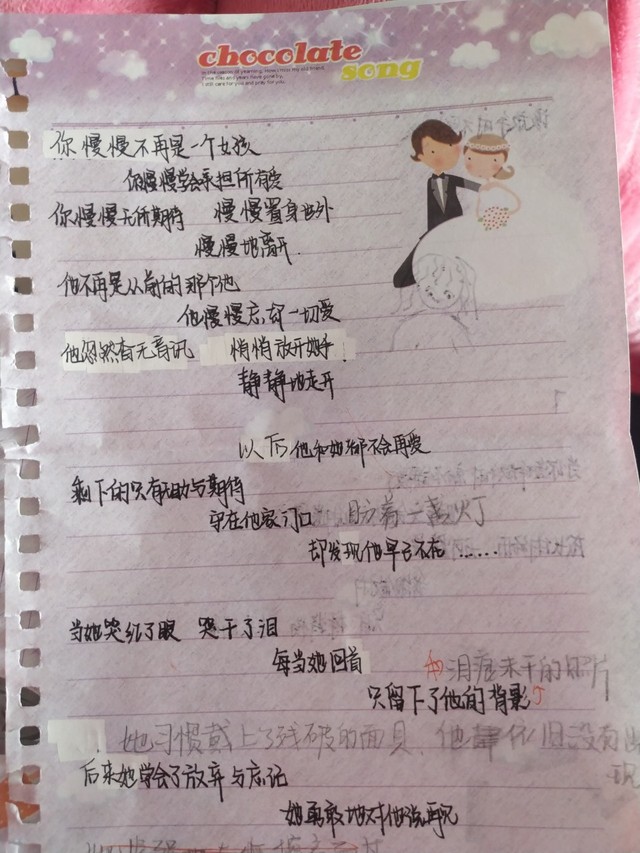 chocolate
song
你慢慢不再是一个女孩
你慢慢学会承担所有爱
你慢慢无所期待 慢慢置身世外
慢慢地离开
他不再是从前的那个他
他慢慢忘却一切爱
他忽然杳无音讯 悄悄放开她手
静静地走开
以后他和她都不会再爱
剩下的只有无助与期待
守在他家门口 盼着一盏灯
却发现他早已不在……
当她哭红了眼 哭干了泪
每当她回首 泪痕未干的照片
只留下了他的背影
她习惯戴上了残破的面具 他 依旧没有出现
后来她学会了放弃与忘记
她勇敢地对他说再见